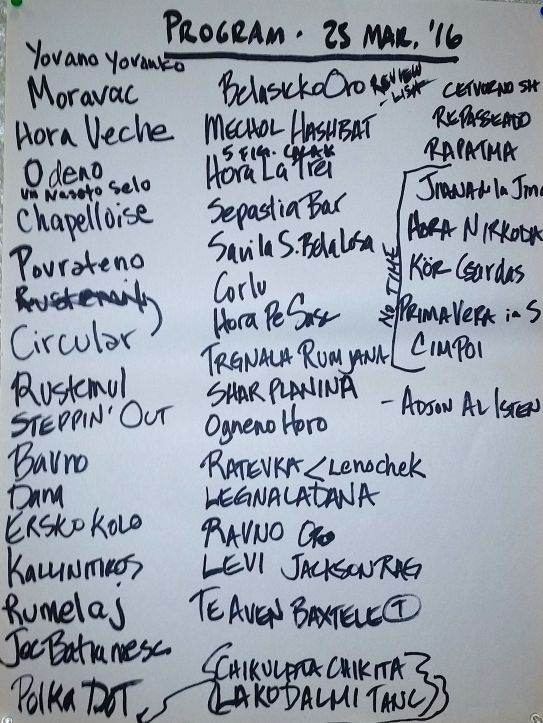 PROGRAM · 25 MAR. '16
Yovano Yovanko
Moravac
Hora Veche
Odeno
un Naseto Selo
Chapelloise
Povrateno
Circular
Rustemul
STEPPIN' OUT
Bavno
Dana
ERSKO KOLO
KALLINITIKOS
Rumelaj
Joc Batranesc
POLKA DOT
Belasicko Oro REVIEW LISA
MECHOL HASHBAT
5 FIG. CALAK
Hora La Trei
Sepastia Bar
Savila S. Bela Losa
Corlu
Hora Pe Sase
TRGNALA RUMJANA
SHAR PLANINA
Ogneno Horo
RATEVKA < Lenochek
LEGNALA DANA
RAVNO Oro
LEVI JACKSON RAG
TE AVEN BAXTELE T
(CHIKULATA CHIKITA
(LAKODALMI TANC))
CETVORNO SH
REPASSEADO
RAPATMA
NO TIME
JIANA de la Jina
HORA NIRKODA
KÖR Csardas
PRIMAVERA in S
CIMPOI
- ADJON AL ISTEN